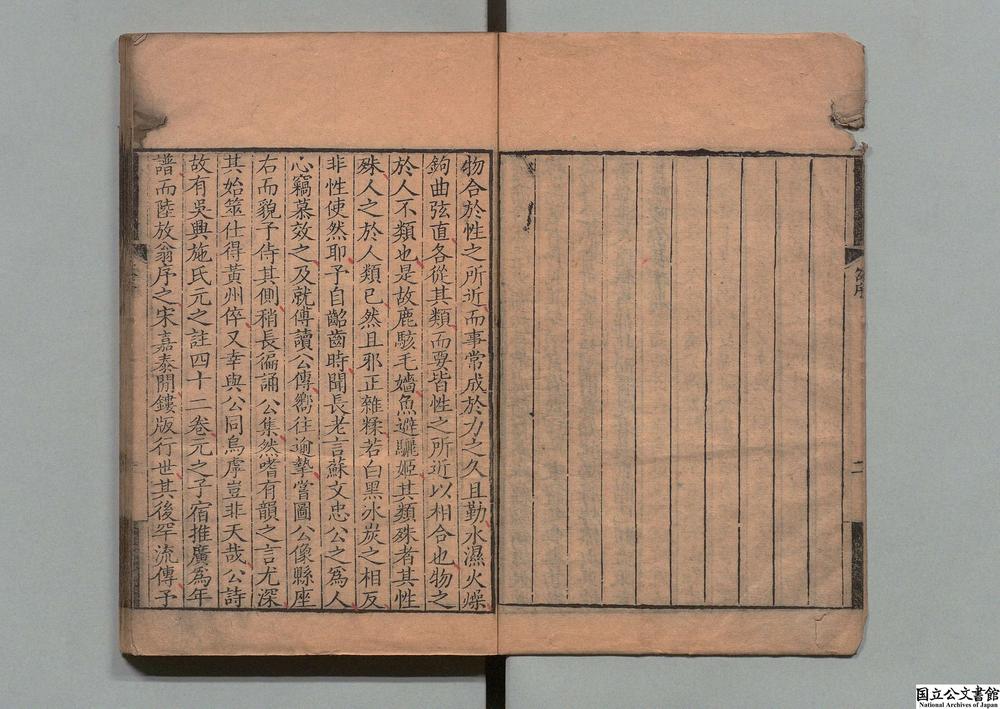 序
二
物合於性之所近而事常成於力之久且勤水濕火燥
鉤曲弦直各從其類而要皆性之所近以相合也物之
於人不類也是故鹿駭毛嬙魚避驪姬其類殊者其性
殊人之於人類已然且邪正雜糅若白黑冰炭之相反
非性使然耶予自齠齒時聞長老言蘇文忠公之爲人
心竊慕效之及就傅讀公傳嚮往逾摯嘗圖公像縣座
右而貌予侍其側稍長徧誦公集然嗜有韻之言尤深
其始筮仕得黃州倅又幸與公同烏虖豈非天哉公詩
故有吳興施氏元之註四十二卷元之子宿推廣爲年
譜而陸放翁序之宋嘉泰閒鏤版行世其後罕流傳予
国立公文書館
National Archives of Japan